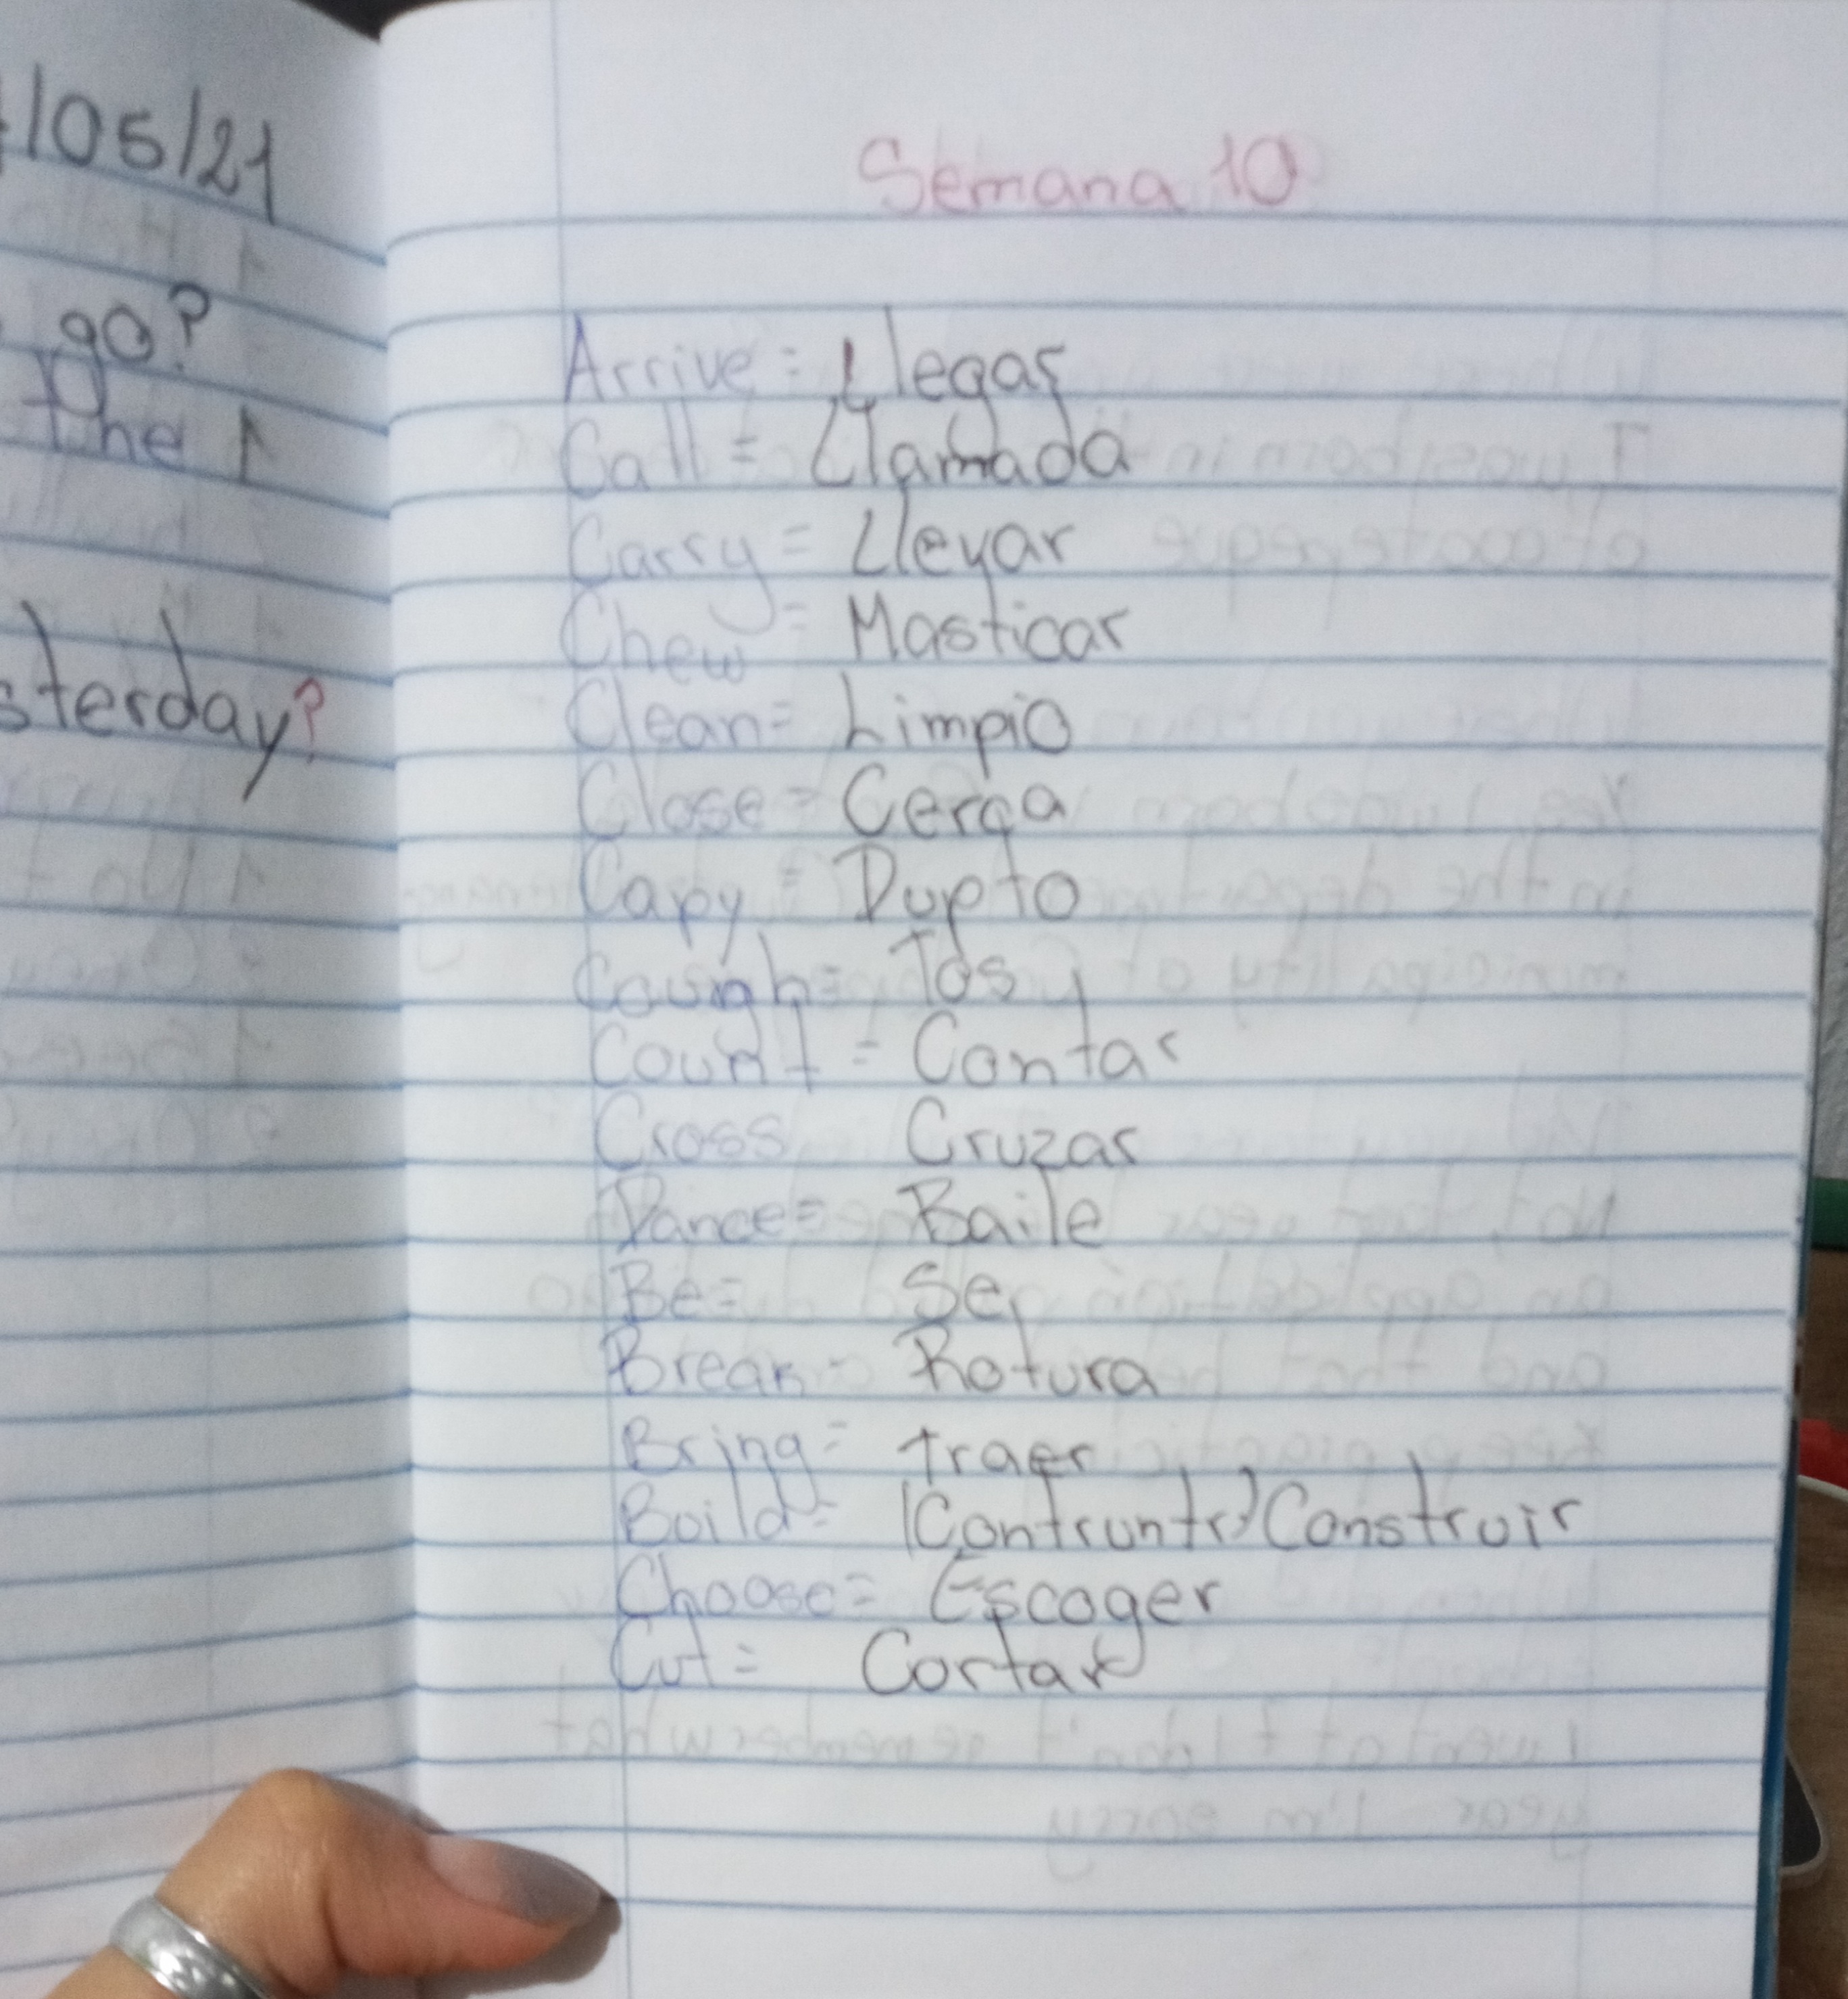 /05/21
go?
the
sterday?
Semana 10
Arrive = Llegar
Call = Llamada
Carry = Llevar
Chew = Masticar
Clean = Limpio
Close = Cerca
Capy = Dupto
Cough = Tos
Count = Contar
Cross Cruzar
Dance = Baile
Be = Se
Break = Rotura
Bring = traer
Boild = (Contruntr) Construir
Choose = Escoger
Cut = Cortar